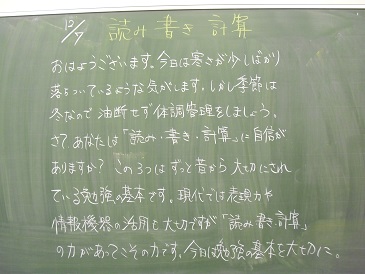 12/7 読み書き計算
おはようございます。今日は寒さが少しばかり
落ちついているような気がします。しかし季節は
冬なので油断せず体調管理をしましょう。
さてあなたは「読み・書き・計算」に自信が
ありますか？この3つはずっと昔から大切にされ
ている勉強の基本です。現代では表現力や
情報機器の活用も大切ですが「読み書き計算」
の力があってこその力です。今日も勉強の基本を大切に。